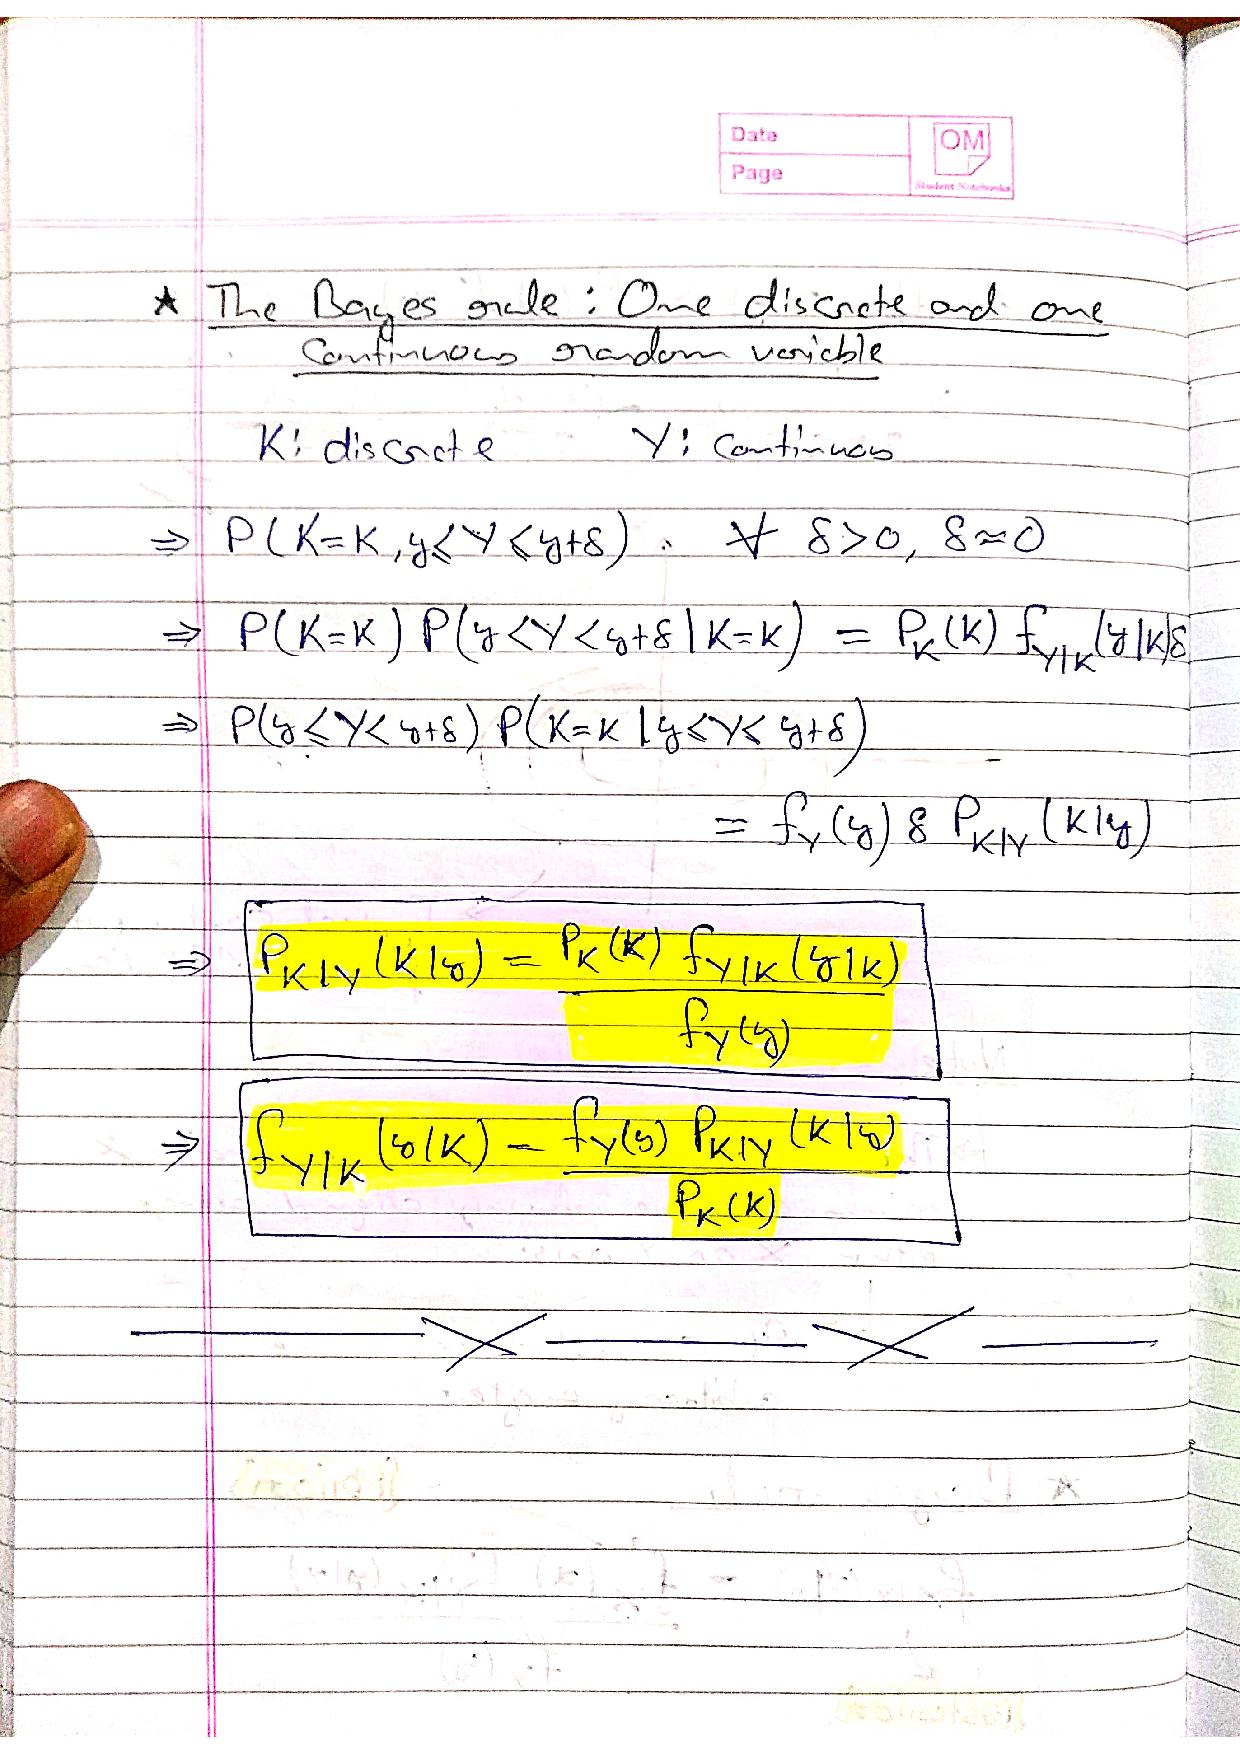 Date
Page
OM
Student Notebooks
★ The Bayes rule : One discrete and one
Continuous random variable
K: discrete Y: Continuous
⇒ P(K=k, y≤Y≤y+δ) . ∀ δ>0, δ≈0
⇒ P(K=k) P(y<Y<y+δ | K=k) = P_K(k) f_{Y|K}(y|k)δ
⇒ P(y≤Y<y+δ) P(K=k | y≤Y≤y+δ)
= f_Y(y) δ P_{K|Y}(k|y)
⇒ P_{K|Y}(k|y) = P_K(k) f_{Y|K}(y|k)
f_Y(y)
⇒ f_{Y|K}(y|k) = f_Y(y) P_{K|Y}(k|y)
P_K(k)